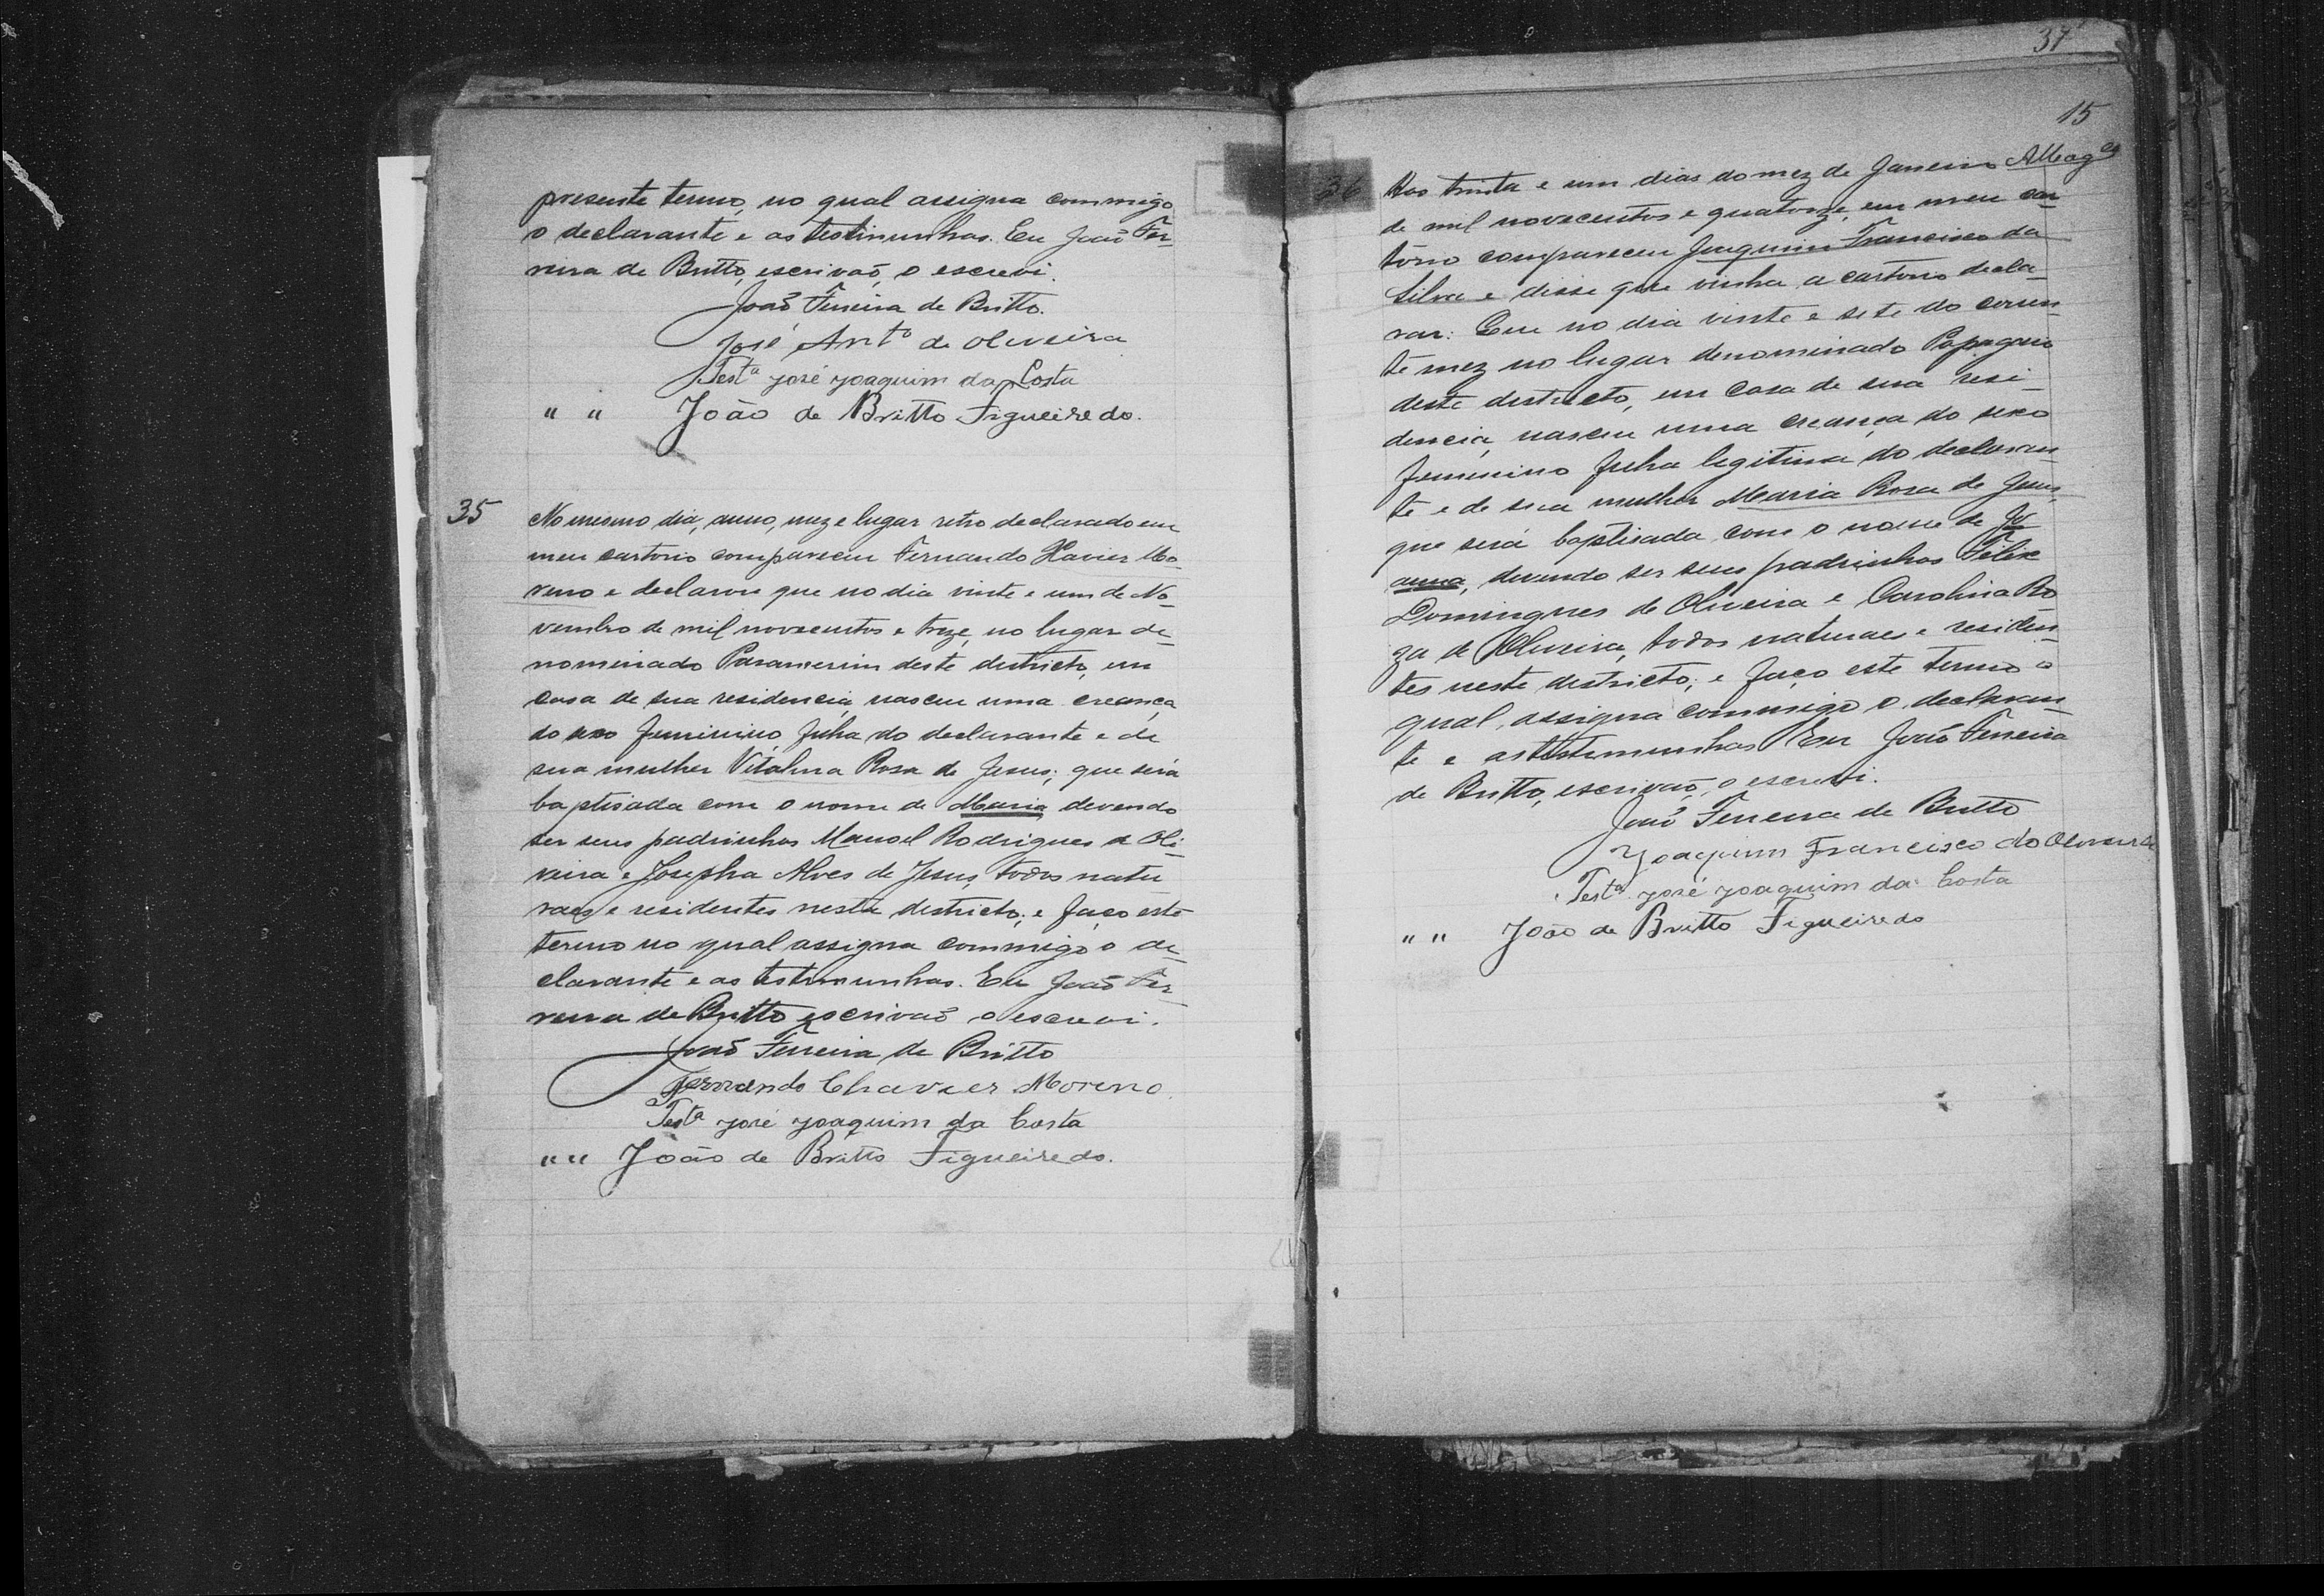 presente termo, no qual assigna commigo
o declarante e as testimunhas. Eu João Fer-
reira de Britto, escrivaõ, o escrevi.
João Ferreira de Britto.
José Ant.o de Oliveira
Test.a José Joaquim da Costa
" " João de Britto Figueiredo.
35 No mesmo dia, anno, mez e lugar retro declarado em
meu cartorio compareceu Fernando Xavier Mo-
reno e declarou que no dia vinte e um de No-
vembro de mil novecentos e treze, no lugar de-
nominado Paramerim deste districto, em
casa de sua residencia, nasceu uma creança
do sexo feminino, filha do declarante e de
sua mulher Vitalina Rosa de Jesus; que será
baptisada com o nome de Maria, devendo
ser seus padrinhos Manoel Rodrigues de Oli-
veira e Josepha Alves de Jesus, todos natu
raes e residentes neste districto; e faço este
termo no qual assigna commigo o de-
clarante e as testimunhas. Eu João Fer-
reira de Britto escrivaõ o escrevi.
João Ferreira de Britto
Fernando Chavier Moreno.
Test.a José Joaquim da Costa
" " João de Britto Figueiredo.
37
15
36 Aos trinta e um dias do mez de Janeiro
de mil novecentos e quatorze, em meu car-
torio compareceu Joaquim Francisco da
Silva e disse que vinha a cartorio decla-
rar: Que no dia vinte e sete do corren-
te mez no lugar denominado Papagaio
deste districto, em casa de sua resi-
dencia, nasceu uma creança do sexo
feminino filha legitima do declaran-
te e de sua mulher Maria Rosa de Jesus,
que será baptisada com o nome de Jo-
anna, devendo ser seus padrinhos Felix
Domingues de Oliveira e Carolina Ro-
za de Oliveira, todos naturaes e residen-
tes neste districto; e faço este termo o
qual, assigna commigo o declaran-
te e as testimunhas Eu João Ferreira
de Britto, escrivaõ, o escrevi.
João Ferreira de Britto
Joaquim Francisco do Oliveira
Test.a José Joaquim da Costa
" " João de Britto Figueiredo